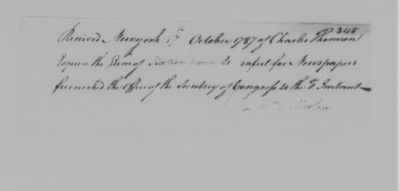 348
Received Newyork 17th October 1787 of Charles Thomson
Esquire the Sum of in full for Newspapers
furnished the Office of the Secretary of Congress to the Instant